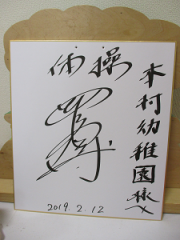 木村幼稚園様へ
体操
2019.2.12